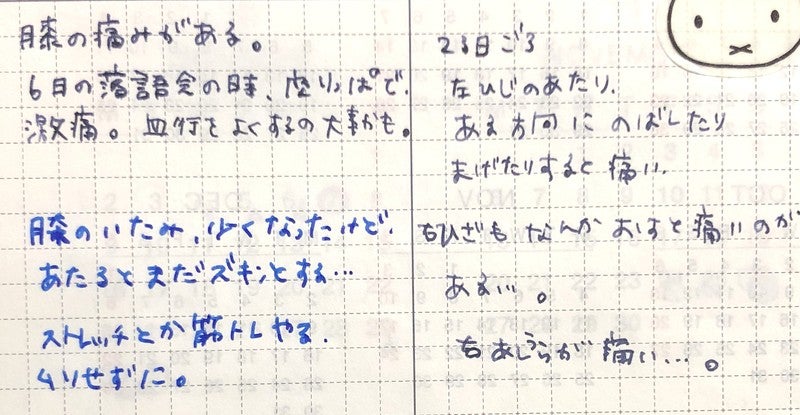 膝の痛みがある。
6日の落語会の時、座りっぱで、
激痛。血行をよくするの大事かも。
膝のいたみ、少くなったけど、
あたるとまだズキンとする…
ストレッチとか筋トレやる、
ムリせずに。
23日ごろ
左ひじのあたり、
ある方向にのばしたり
まげたりすると痛い、
右ひざもなんかおすと痛いのが
ある…。
右あしうらが痛い…。